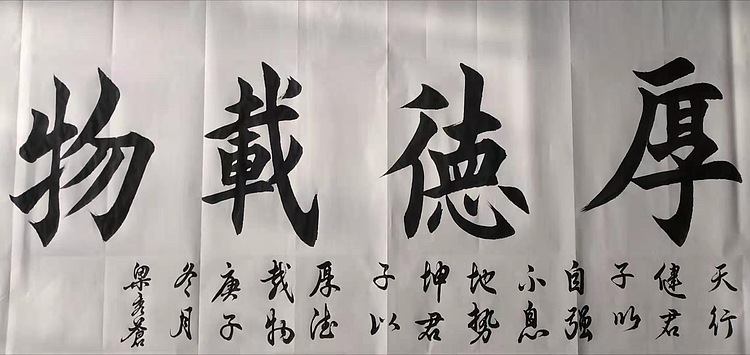 厚德載物
天行
健君
子以
自强
不息
地勢
坤君
子以
厚德
载物
庚子
冬月
梁